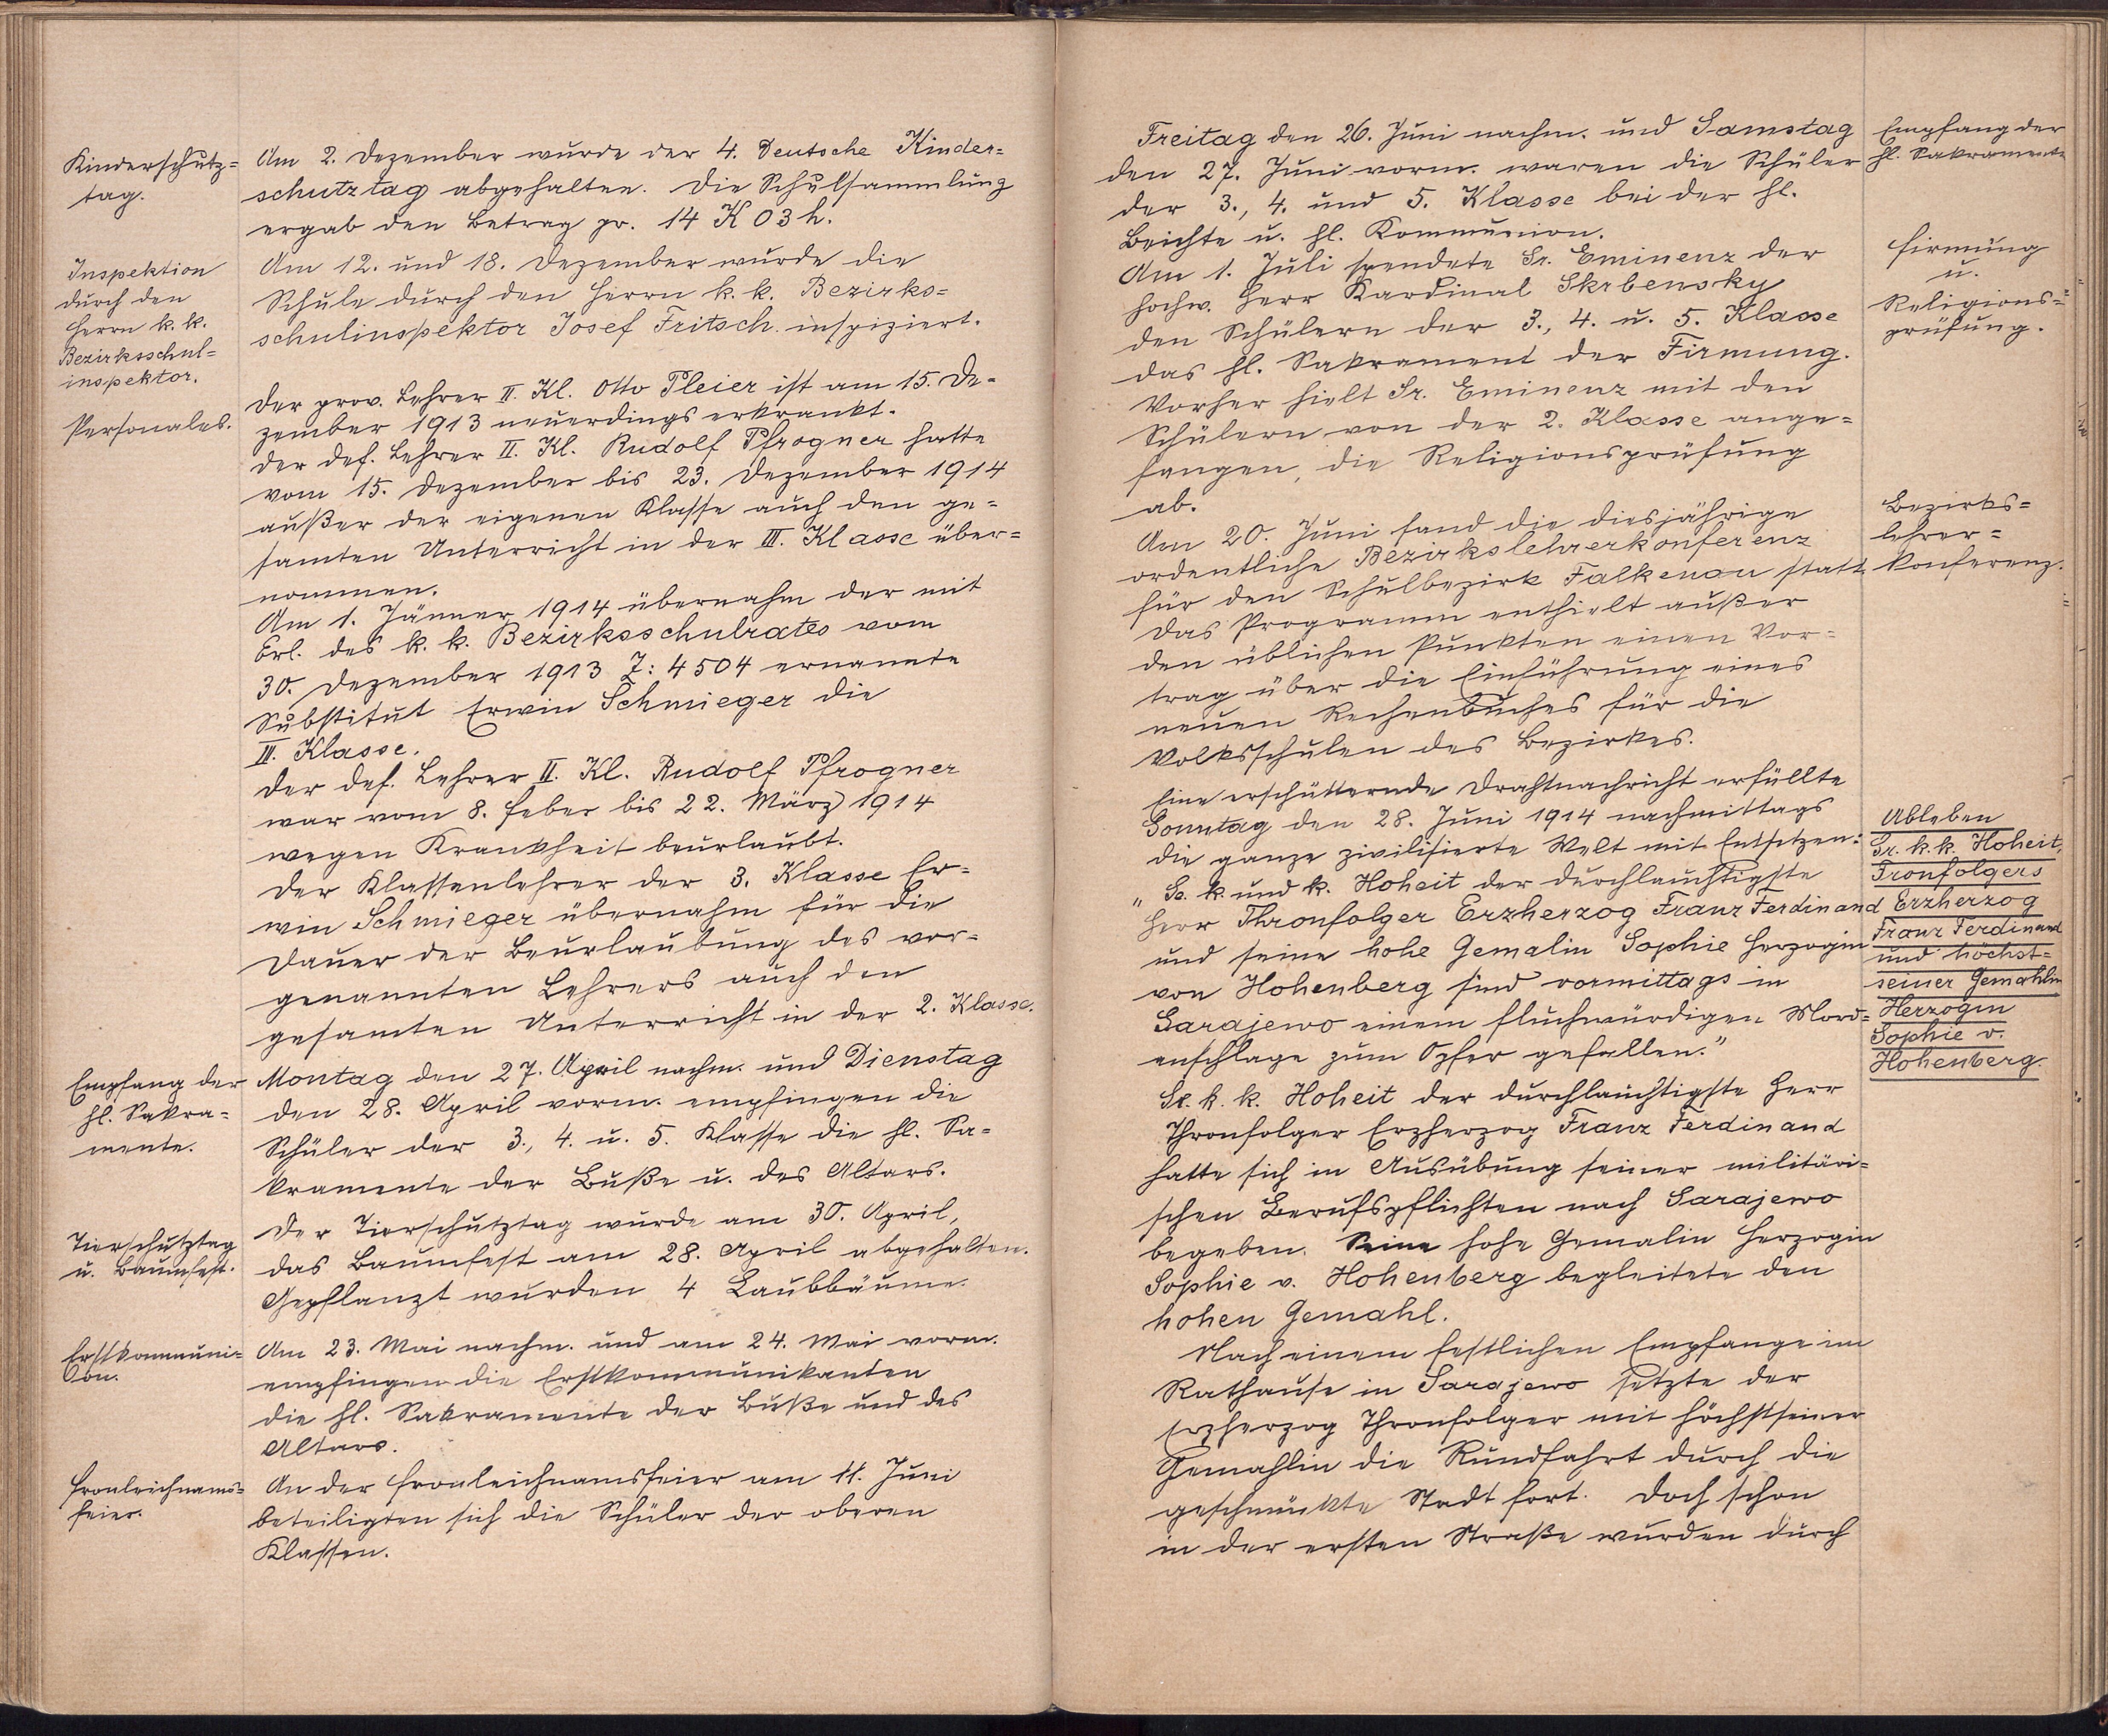 Kinderschutz=
tag.
Am 2. Dezember wurde der 4. Deutsche Kinder=
schutztag abgehalten. Die Schulsammlung
ergab den Betrag pr. 14 K 03 h.
Inspektion
durch den
Herrn k. k.
Bezirksschul=
inspektor.
Am 12. und 18. Dezember wurde die
Schule durch den Herrn k. k. Bezirks=
schulinspektor Josef Fritsch inspiziert.
Personales.
Der prov. Lehrer II. Kl. Otto Pleier ist am 15. De-
zember 1913 neuerdings erkrankt.
Der def. Lehrer II. Kl. Rudolf Pfrogner hatte
vom 15. Dezember bis 23. Dezember 1914
außer der eigenen Klasse auch den ge=
samten Unterricht in der III. Klasse über=
nommen.
Am 1. Jänner 1914 übernahm der mit
Erl. des k. k. Bezirksschulrates vom
30. Dezember 1913 Z: 4504 ernannte
Substitut Erwin Schmieger die
III. Klasse.
Der def. Lehrer II. Kl. Rudolf Pfrogner
war vom 8. Feber bis 22. März 1914
wegen Krankheit beurlaubt.
Der Klassenlehrer der 3. Klasse Er=
win Schmieger übernahm für die
Dauer der Beurlaubung des vor=
genannten Lehrers auch den
gesamten Unterricht in der 2. Klasse.
Empfang der
hl. Sakra=
mente.
Montag den 27. April nachm. und Dienstag
den 28. April vorm. empfingen die
Schüler der 3., 4. u. 5. Klasse die hl. Sa=
kramente der Buße u. des Altars.
Tierschutztag
u. Baumfest.
Der Tierschutztag wurde am 30. April,
das Baumfest am 28. April abgehalten.
Gepflanzt wurden 4 Laubbäume.
Erstkommuni=
on.
Am 23. Mai nachm. und am 24. Mai vorm.
empfingen die Erstkommunikanten
die hl. Sakramente der Buße und des
Altars.
Fronleichnams=
feier.
An der Fronleichnamsfeier am 11. Juni
beteiligten sich die Schüler der oberen
Klassen.
Freitag den 26. Juni nachm. und Samstag
den 27. Juni vorm. waren die Schüler
der 3., 4. und 5. Klasse bei der hl.
Beichte u. hl. Kommunion.
Empfang der
hl. Sakramente
Am 1. Juli spendete Sr. Eminenz der
hochw. Herr Kardinal Skrbensky
den Schülern der 3., 4. u. 5. Klasse
das hl. Sakrament der Firmung.
Vorher hielt Sr. Eminenz mit den
Schülern von der 2. Klasse ange=
fangen, die Religionsprüfung
ab.
Firmung
u.
Religions=
prüfung.
Am 20. Juni fand die diesjährige
ordentliche Bezirkslehrerkonferenz
für den Schulbezirk Falkenau statt.
Das Programm enthielt außer
den üblichen Punkten einen Vor=
trag über die Einführung eines
neuen Rechenbuches für die
Volksschulen des Bezirkes.
Bezirks=
lehrer=
konferenz.
Eine erschütternde Drahtnachricht erfüllte
Sonntag den 28. Juni 1914 nachmittags
die ganze zivilisierte Welt mit Entsetzen:
"Se. k. und k. Hoheit der durchlauchtigste
Herr Thronfolger Erzherzog Franz Ferdinand
und seine hohe Gemalin Sophie Herzogin
von Hohenberg sind vormittags in
Sarajewo einem fluchwürdigen Mord=
anschlage zum Opfer gefallen."
Ableben
Sr. k. k. Hoheit,
Tronfolgers
Erzherzog
Franz Ferdinand
und höchst=
seiner Gemahlin
Herzogin
Sophie v.
Hohenberg.
Se. k. k. Hoheit der durchlauchtigste Herr
Thronfolger Erzherzog Franz Ferdinand
hatte sich in Ausübung seiner militäri=
schen Berufspflichten nach Sarajewo
begeben. Seine hohe Gemalin Herzogin
Sophie v. Hohenberg begleitete den
hohen Gemahl.
Nach einem festlichen Empfange im
Rathause in Sarajewo setzte der
Erzherzog Thronfolger mit höchstseiner
Gemahlin die Rundfahrt durch die
geschmückte Stadt fort. Doch schon
in der ersten Straße wurden durch